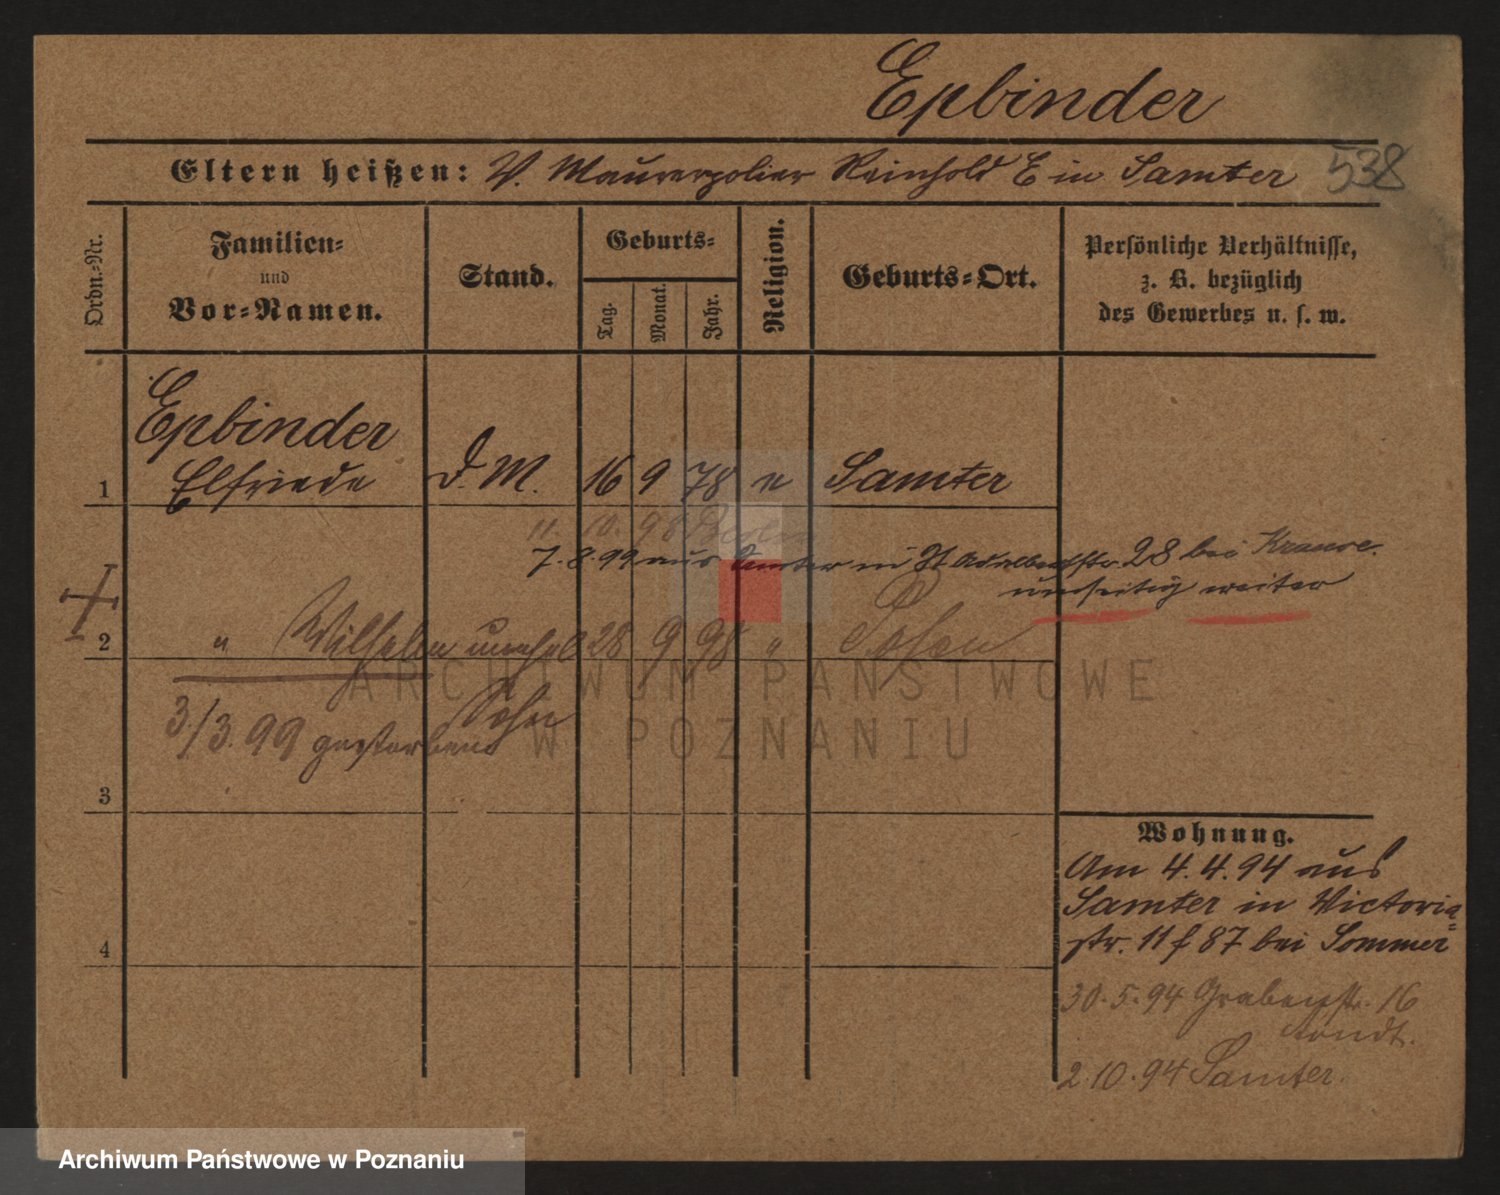 Epbinder
Eltern heißen: V. Maurerpolier Reinhold E in Samter 538
Ordn.-Nr.
Familien-
und
Vor-Namen.
Stand.
Geburts-
Tag.
Monat.
Jahr.
Religion.
Geburts-Ort.
Persönliche Verhältnisse,
z. B. bezüglich
des Gewerbes u. s. w.
Epbinder
1 Elfriede D. M. 16 9 78 Samter
11. 10. 98
7. 8. 99 aus Samter in St Adalbertstr. 28 bei Krause.
umseitig weiter
2 " Wilhelm unehel 28 9 98 " Posen
Sohn
3./3. 99 gestorben
3
4
Wohnung.
Am 4. 4. 94 aus
Samter in Victoria-
str. 11 f 87 bei Sommer
30. 5. 94 Grabenstr. 16
2. 10. 94 Samter.
ARCHIWUM PAŃSTWOWE
W POZNANIU
Archiwum Państwowe w Poznaniu